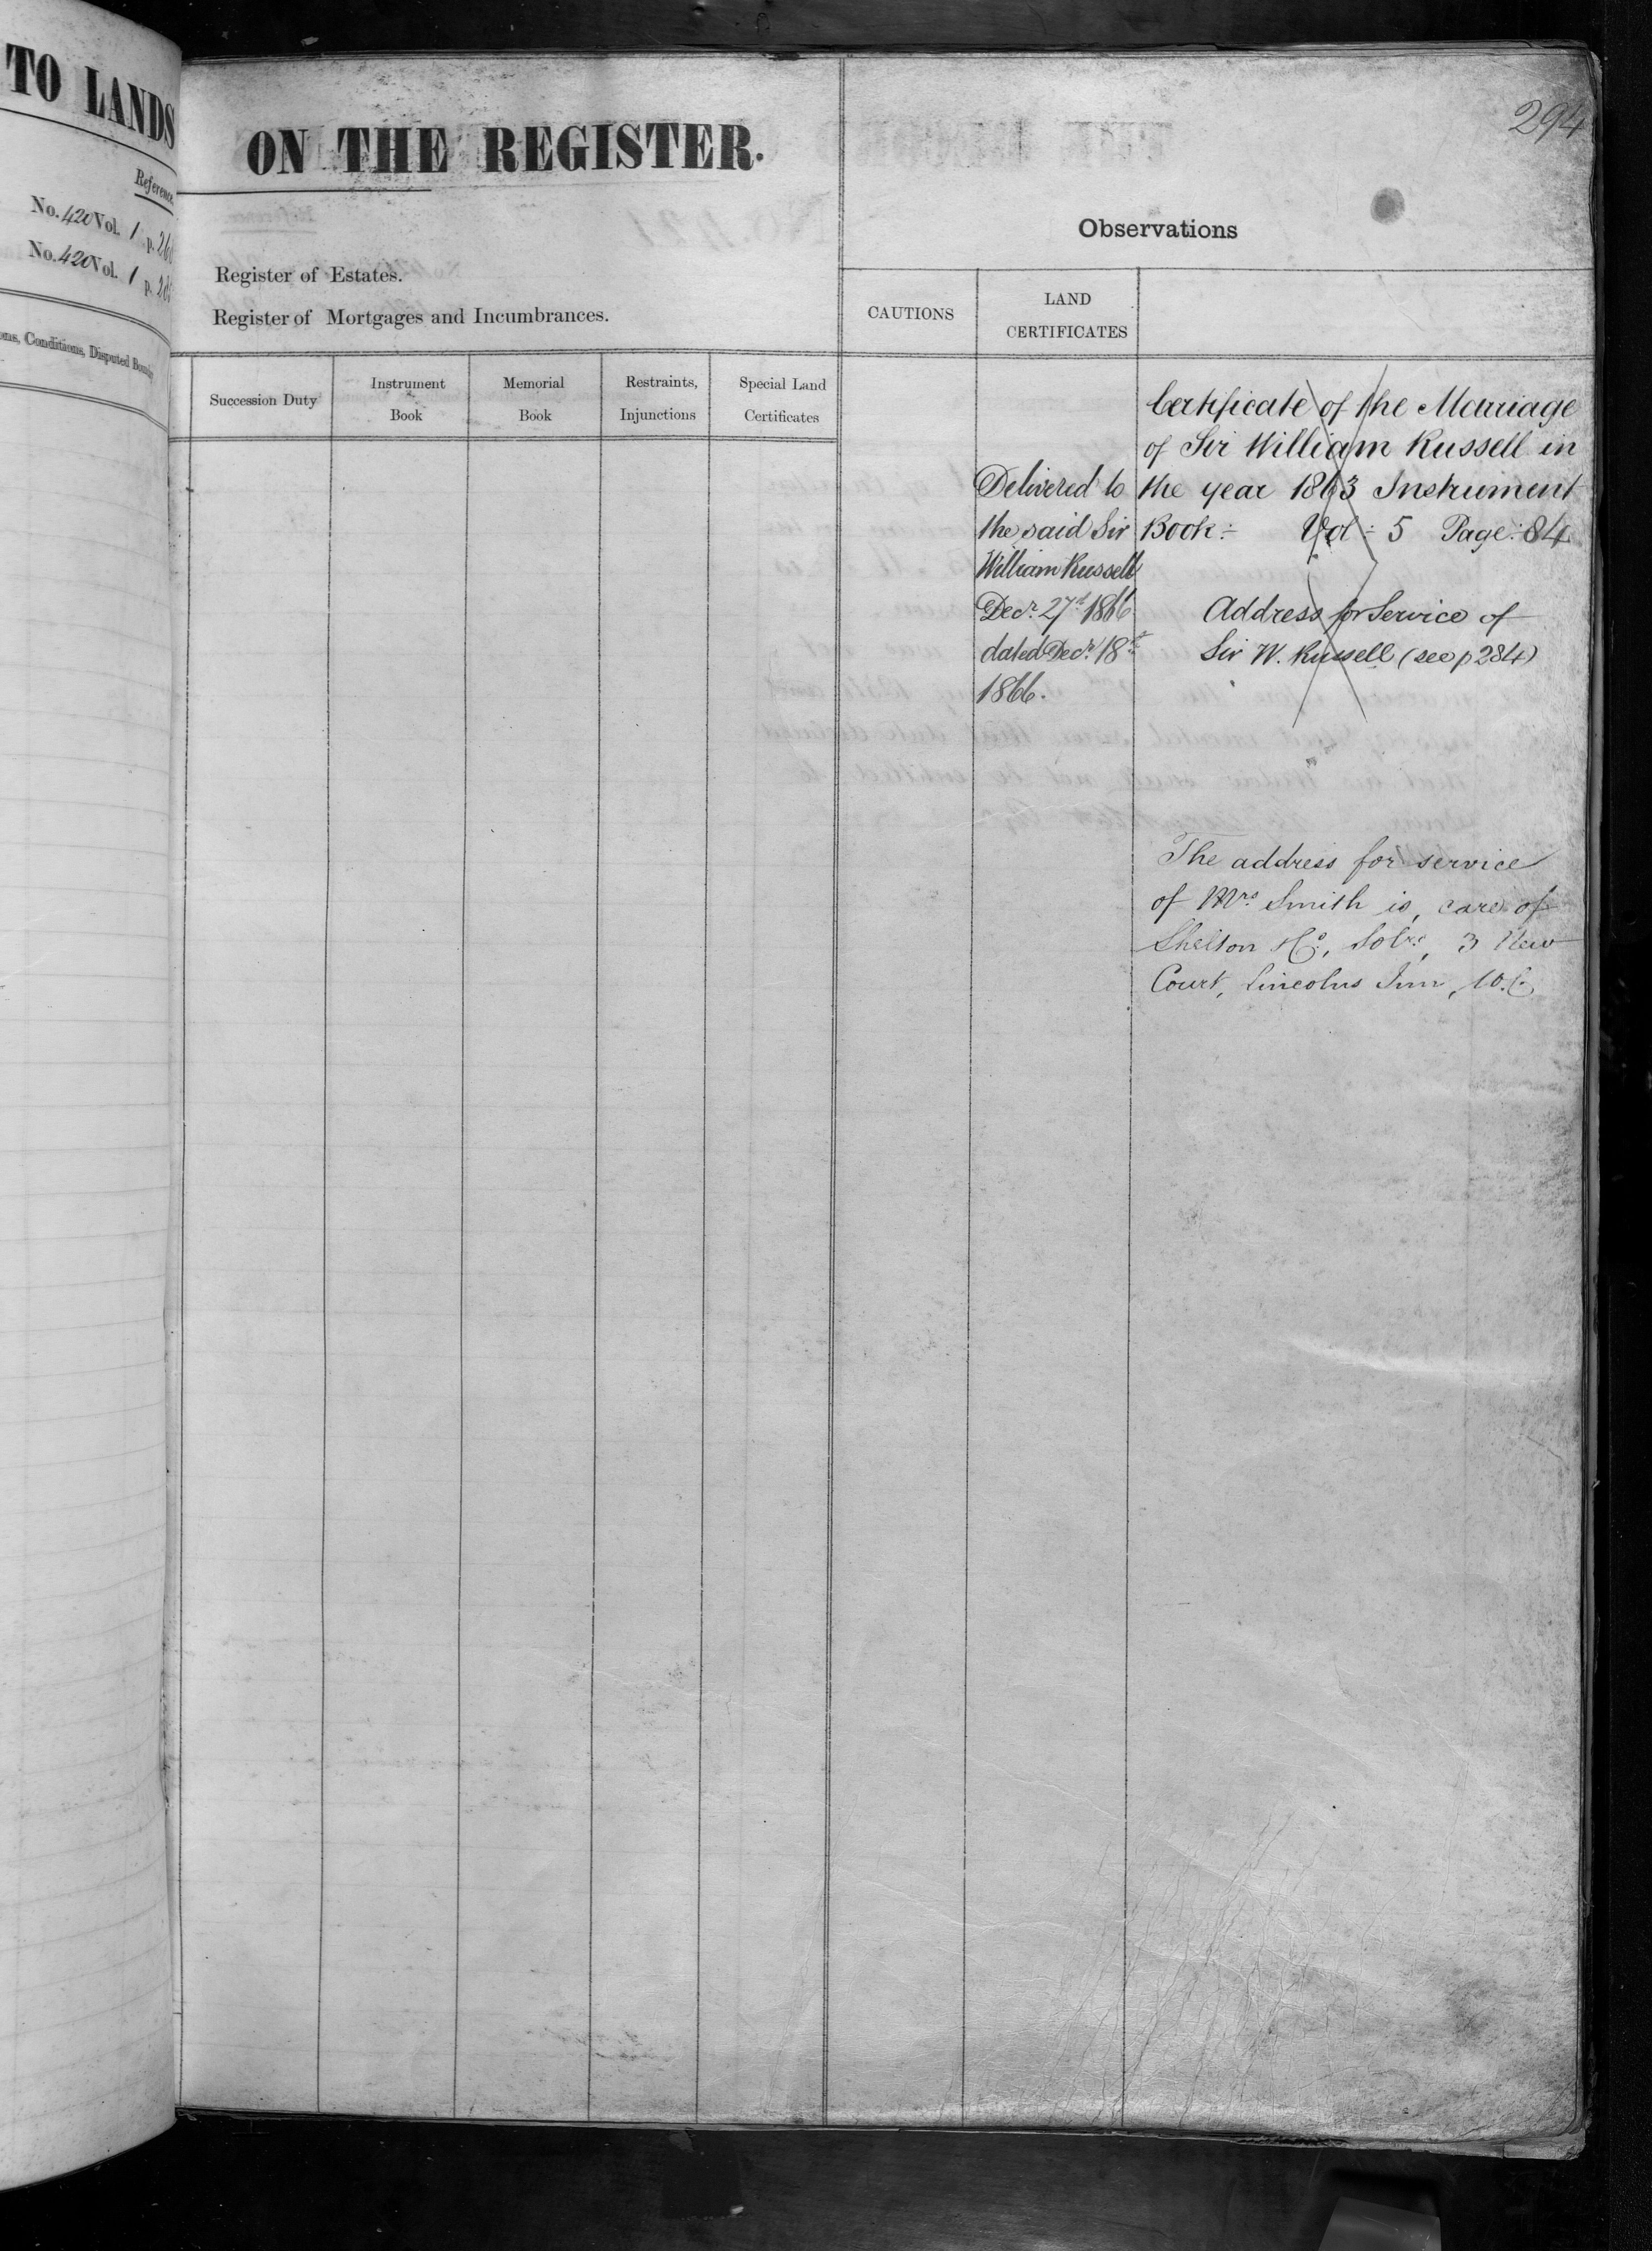 TO LANDS
Reference
No. 420 Vol. 1 p.
No. 420 Vol. 1 p.
Conditions, Disputed
294
ON THE REGISTER.
Observations
Register of Estates.
Register of Mortgages and Incumbrances.
CAUTIONS
LAND
CERTIFICATES
Succession Duty
Instrument
Book
Memorial
Book
Restraints,
Injunctions
Special Land
Certificates
Delivered to
the said Sir
William Russell
Decr. 27th 1866
dated Decr. 18th
1866.
Certificate of the Marriage
of Sir William Russell in
the year 1863 Instrument
Book:- Vol:- 5 Page: 84
Address for Service of
Sir W. Russell (see p 284)
The address for service
of Mrs. Smith is, care of
Shelton & Co., Solrs., 3 New
Court, Lincolns Inn, W.C.